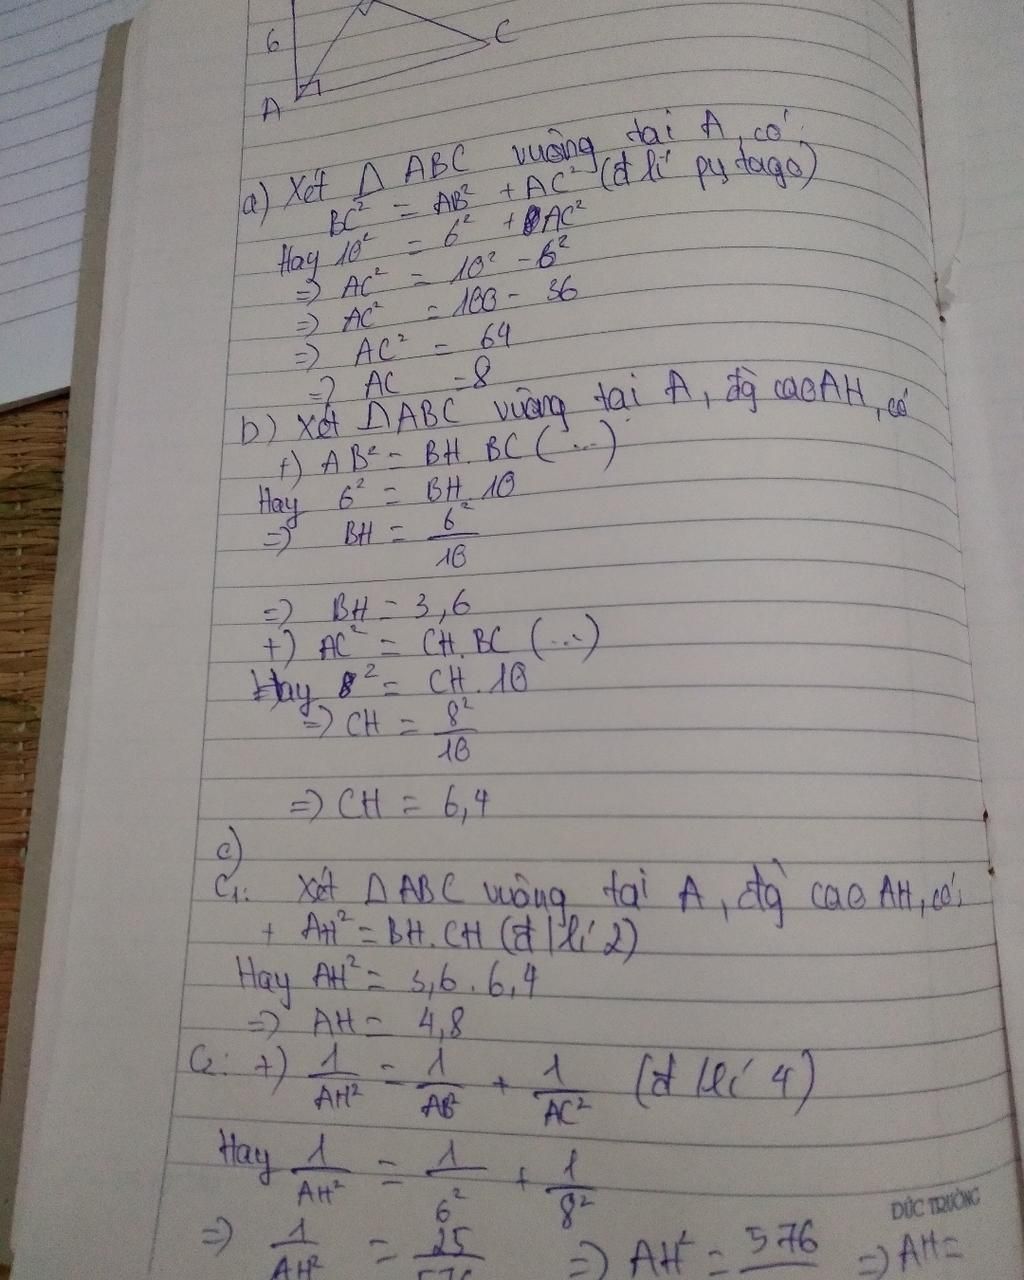 6
C
A
a) Xét Δ ABC vuông tại A, có:
BC² = AB² + AC² (đ lí pytago)
Hay 10² = 6² + AC²
=> AC² = 10² - 6²
=> AC² = 100 - 36
=> AC² = 64
=> AC = 8
b) Xét Δ ABC vuông tại A, đg cao AH, có
+) AB² = BH. BC (...)
Hay 6² = BH. 10
=> BH = 6²/10
=> BH = 3,6
+) AC² = CH. BC (...)
Hay 8² = CH. 10
=> CH = 8²/10
=> CH = 6,4
c)
C1: Xét Δ ABC vuông tại A, đg cao AH, có:
+ AH² = BH. CH (đ/lí 2)
Hay AH² = 3,6 . 6,4
=> AH = 4,8
C2: +) 1/AH² = 1/AB² + 1/AC² (đ/lí 4)
Hay 1/AH² = 1/6² + 1/8²
=> 1/AH² = 25/576 => AH² = 576 => AH =
ĐỨC TRƯỜNG